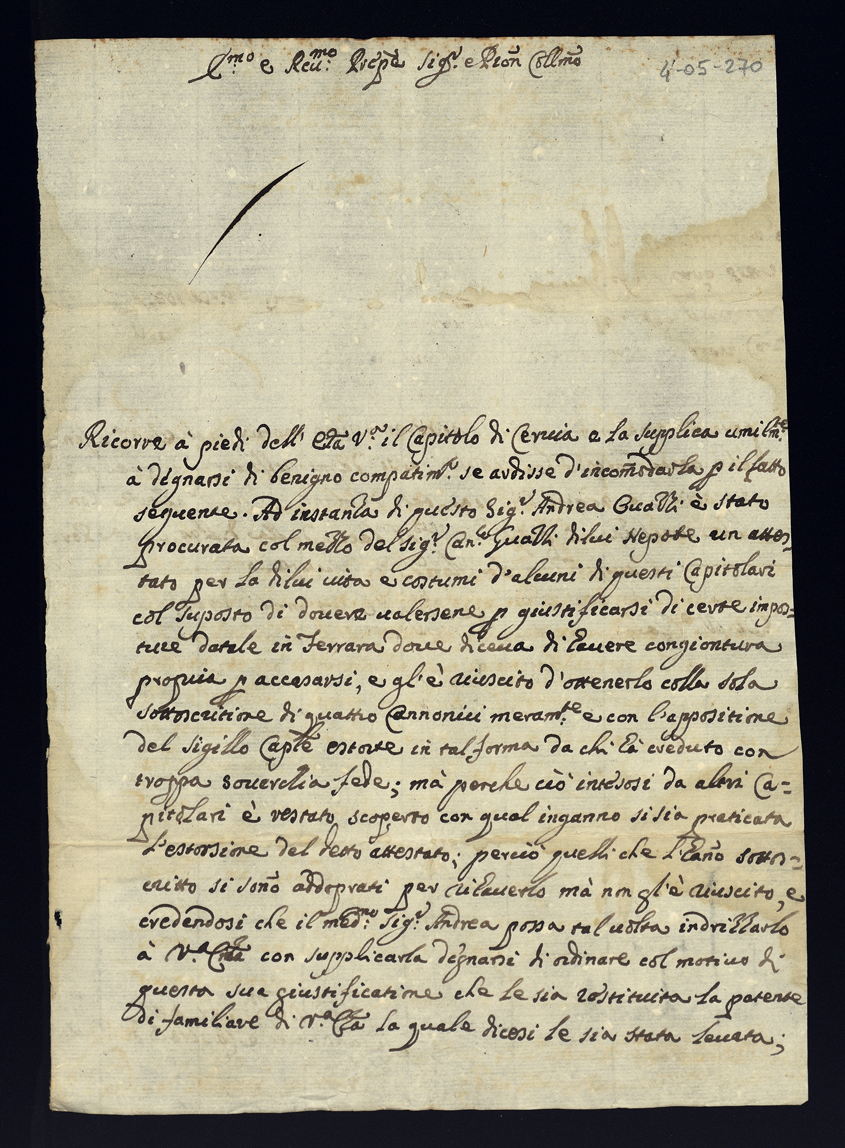 E.mo e Reu.mo Prépe Sig.r e Pron Collmo
4-05-270
Ricorre à piedi dell' Em̃a V.ra il Capitolo di Ceruia e la supplica umilm.te
à degnarsi di benigno compatim.to se ardisse d'incom̃odarla p il fatto
seguente. Ad instanza di questo Sig.r Andrea Gualli è stato
procurata col mezzo del sig.r Can.co Gualli di lui Nepote un attes-
tato per la di lui uita e costumi d'alcuni di questi Capitolari
col suposto di douere ualersene p giustificarsi di certe impos-
ture datale in Ferrara doue diceua di hauere congiontura
propria p accasarsi, e gl'è riuscito d'ottenerlo colla sola
sottoscritione di quattro Cannonici meram.te e con l'appositione
del sigillo Caple estorte in tal forma da chi hà creduto con
troppa souerchia fede; mà perche ciò intesosi da altri Ca=
pitolari è restato scoperto con qual inganno si sia praticata
l'estorsione del detto attestato; perciò quelli che l'hano sottos=
critto si sono addoprati per rihauerlo mà non gl'è riuscito, e
credendosi che il med.mo Sig.r Andrea possa tal uolta indrizzarlo
à V.a Em̃a con supplicarla degnarsi di ordinare col motiuo di
questa sua giustificatione che le sia restituita la patente
di familiare di V.a Em̃a la quale dicesi le sia stata leuata;